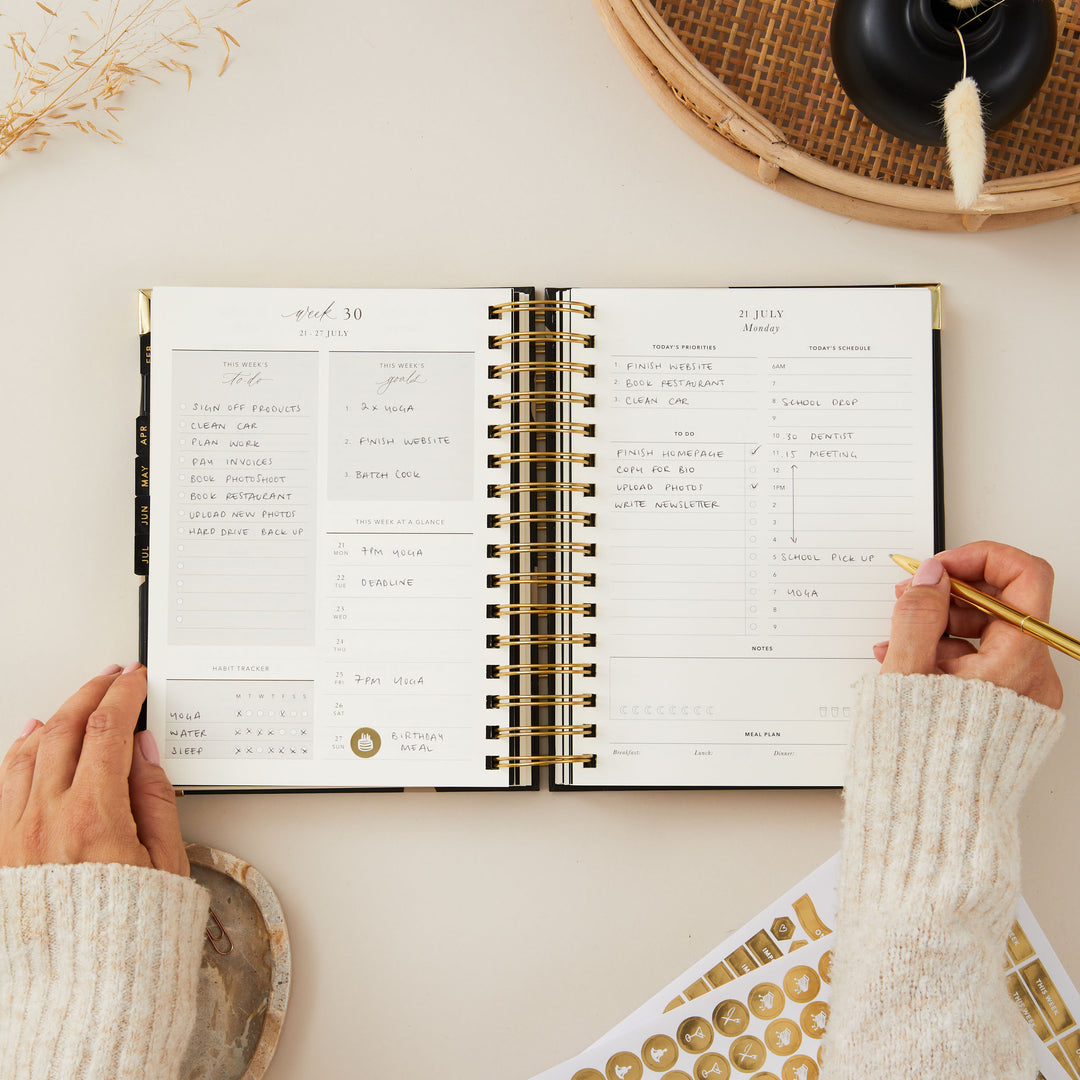 week 30
21 - 27 JULY
THIS WEEK'S
to-do
SIGN OFF PRODUCTS
CLEAN CAR
PLAN WORK
PAY INVOICES
BOOK PHOTOSHOOT
BOOK RESTAURANT
UPLOAD NEW PHOTOS
HARD DRIVE BACK UP
HABIT TRACKER
M T W T F S S
YOGA
WATER
SLEEP
THIS WEEK'S
goals
1. 2 x YOGA
2. FINISH WEBSITE
3. BATCH COOK
THIS WEEK AT A GLANCE
21 MON 7PM YOGA
22 TUE DEADLINE
23 WED
24 THU
25 FRI 7PM YOGA
26 SAT
27 SUN BIRTHDAY
MEAL
FEB
APR
MAY
JUN
JUL
21 JULY
Monday
TODAY'S PRIORITIES
1. FINISH WEBSITE
2. BOOK RESTAURANT
3. CLEAN CAR
TO DO
FINISH HOMEPAGE
COPY FOR BIO
UPLOAD PHOTOS
WRITE NEWSLETTER
TODAY'S SCHEDULE
6AM
7
8 SCHOOL DROP
9
10 30 DENTIST
11 15 MEETING
12
1PM
2
3
4
5 SCHOOL PICK UP
6
7 YOGA
8
9
NOTES
MEAL PLAN
Breakfast: Lunch: Dinner:
THIS WEEK
THIS WEEK